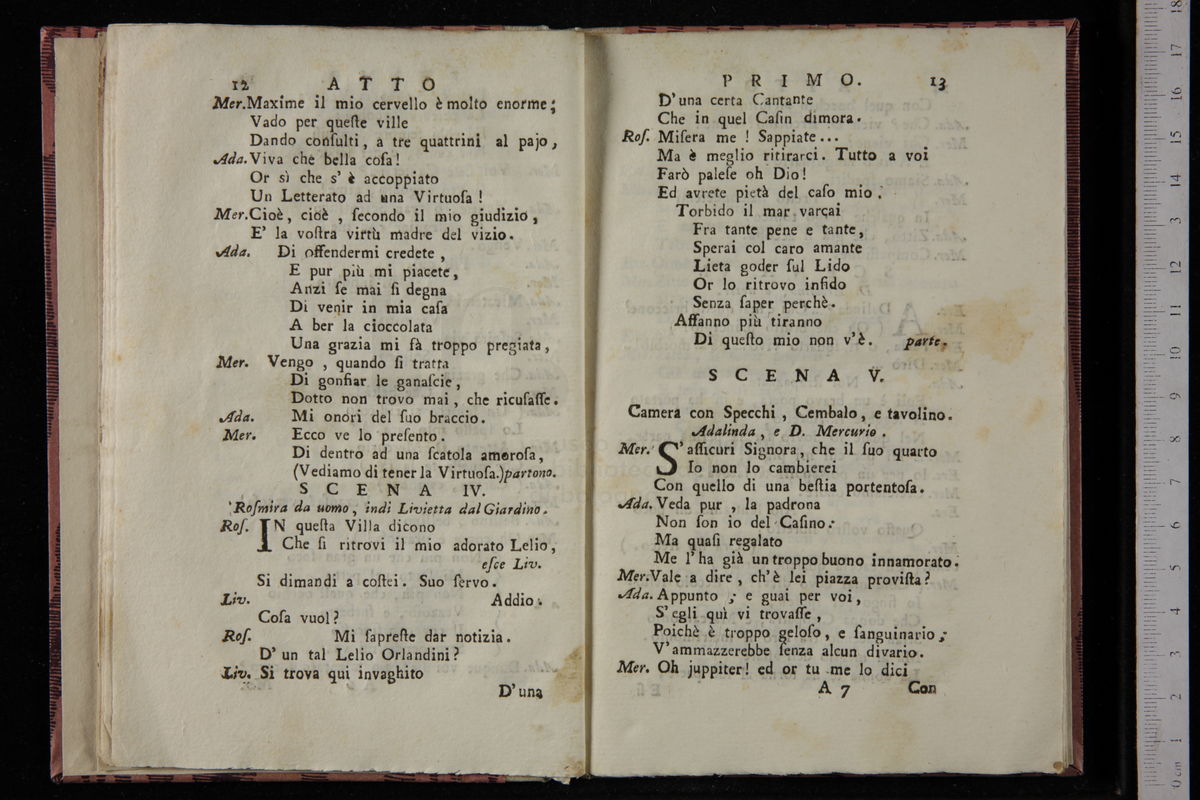 12 ATTO
Mer. Maxime il mio cervello è molto enorme;
Vado per queſte ville
Dando conſulti, a tre quattrini al pajo,
Ada. Viva che bella coſa!
Or sì che s' è accoppiato
Un Letterato ad una Virtuoſa!
Mer. Cioè, cioè, ſecondo il mio giudizio,
E' la voſtra virtù madre del vizio.
Ada. Di offendermi credete,
E pur più mi piacete,
Anzi ſe mai ſi degna
Di venir in mia caſa
A ber la cioccolata
Una grazia mi fà troppo pregiata,
Mer. Vengo, quando ſi tratta
Di gonfiar le ganaſcie,
Dotto non trovo mai, che ricuſaſſe.
Ada. Mi onori del ſuo braccio.
Mer. Ecco ve lo preſento.
Di dentro ad una ſcatola amoroſa,
(Vediamo di tener la Virtuoſa.) partono.
SCENA IV.
Roſmira da uomo, indi Livietta dal Giardino.
Roſ. IN queſta Villa dicono
Che ſi ritrovi il mio adorato Lelio,
eſce Liv.
Si dimandi a coſtei. Suo ſervo.
Liv. Addio.
Coſa vuol?
Roſ. Mi ſapreſte dar notizia.
D' un tal Lelio Orlandini?
Liv. Si trova qui invaghito
D'una
PRIMO. 13
D'una certa Cantante
Che in quel Caſin dimora.
Roſ. Miſera me! Sappiate...
Ma è meglio ritirarci. Tutto a voi
Farò paleſe oh Dio!
Ed avrete pietà del caſo mio.
Torbido il mar varcai
Fra tante pene e tante,
Sperai col caro amante
Lieta goder ſul Lido
Or lo ritrovo infido
Senza ſaper perchè.
Affanno più tiranno
Di queſto mio non v'è. parte.
SCENA V.
Camera con Specchi, Cembalo, e tavolino.
Adalinda, e D. Mercurio.
Mer. S'aſſicuri Signora, che il ſuo quarto
Io non lo cambierei
Con quello di una beſtia portentoſa.
Ada. Veda pur, la padrona
Non ſon io del Caſino:
Ma quaſi regalato
Me l'ha già un troppo buono innamorato.
Mer. Vale a dire, ch'è lei piazza proviſta?
Ada. Appunto; e guai per voi,
S'egli quì vi trovaſſe,
Poichè è troppo geloſo, e ſanguinario;
V'ammazzerebbe ſenza alcun divario.
Mer. Oh juppiter! ed or tu me lo dici
A 7 Con
0 cm 1 2 3 4 5 6 7 8 9 10 11 12 13 14 15 16 17 18